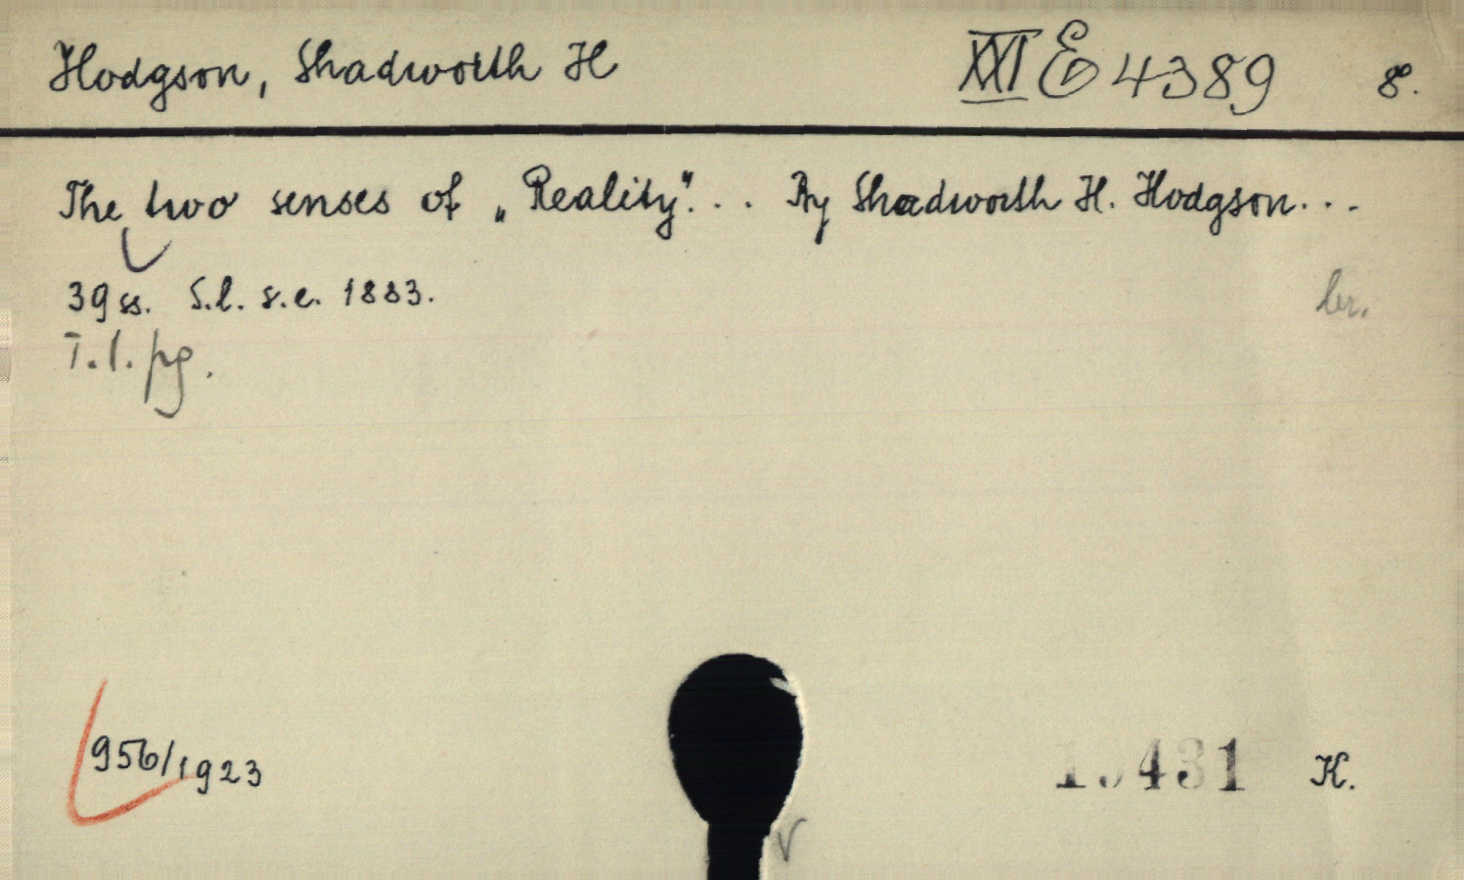 Hodgson, Shadworth H XXI E 4389 8°.
The two senses of „Reality“... By Shadworth H. Hodgson...
39 ss. S.l. s.e. 1883. br.
T.l. pg.
956/1923 K.